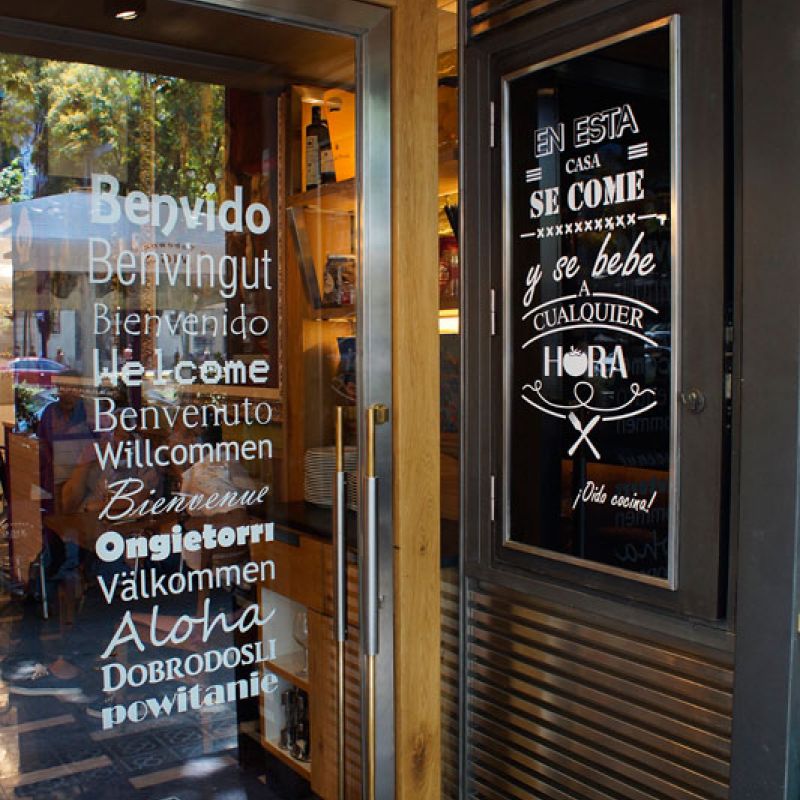 Benvido
Benvingut
Bienvenido
Welcome
Benvenuto
Willcommen
Bienvenue
Ongietorri
Välkommen
Aloha
DOBRODOSLI
powitanie
EN ESTA
CASA
SE COME
y se bebe
A
CUALQUIER
HORA
¡Oido cocina!